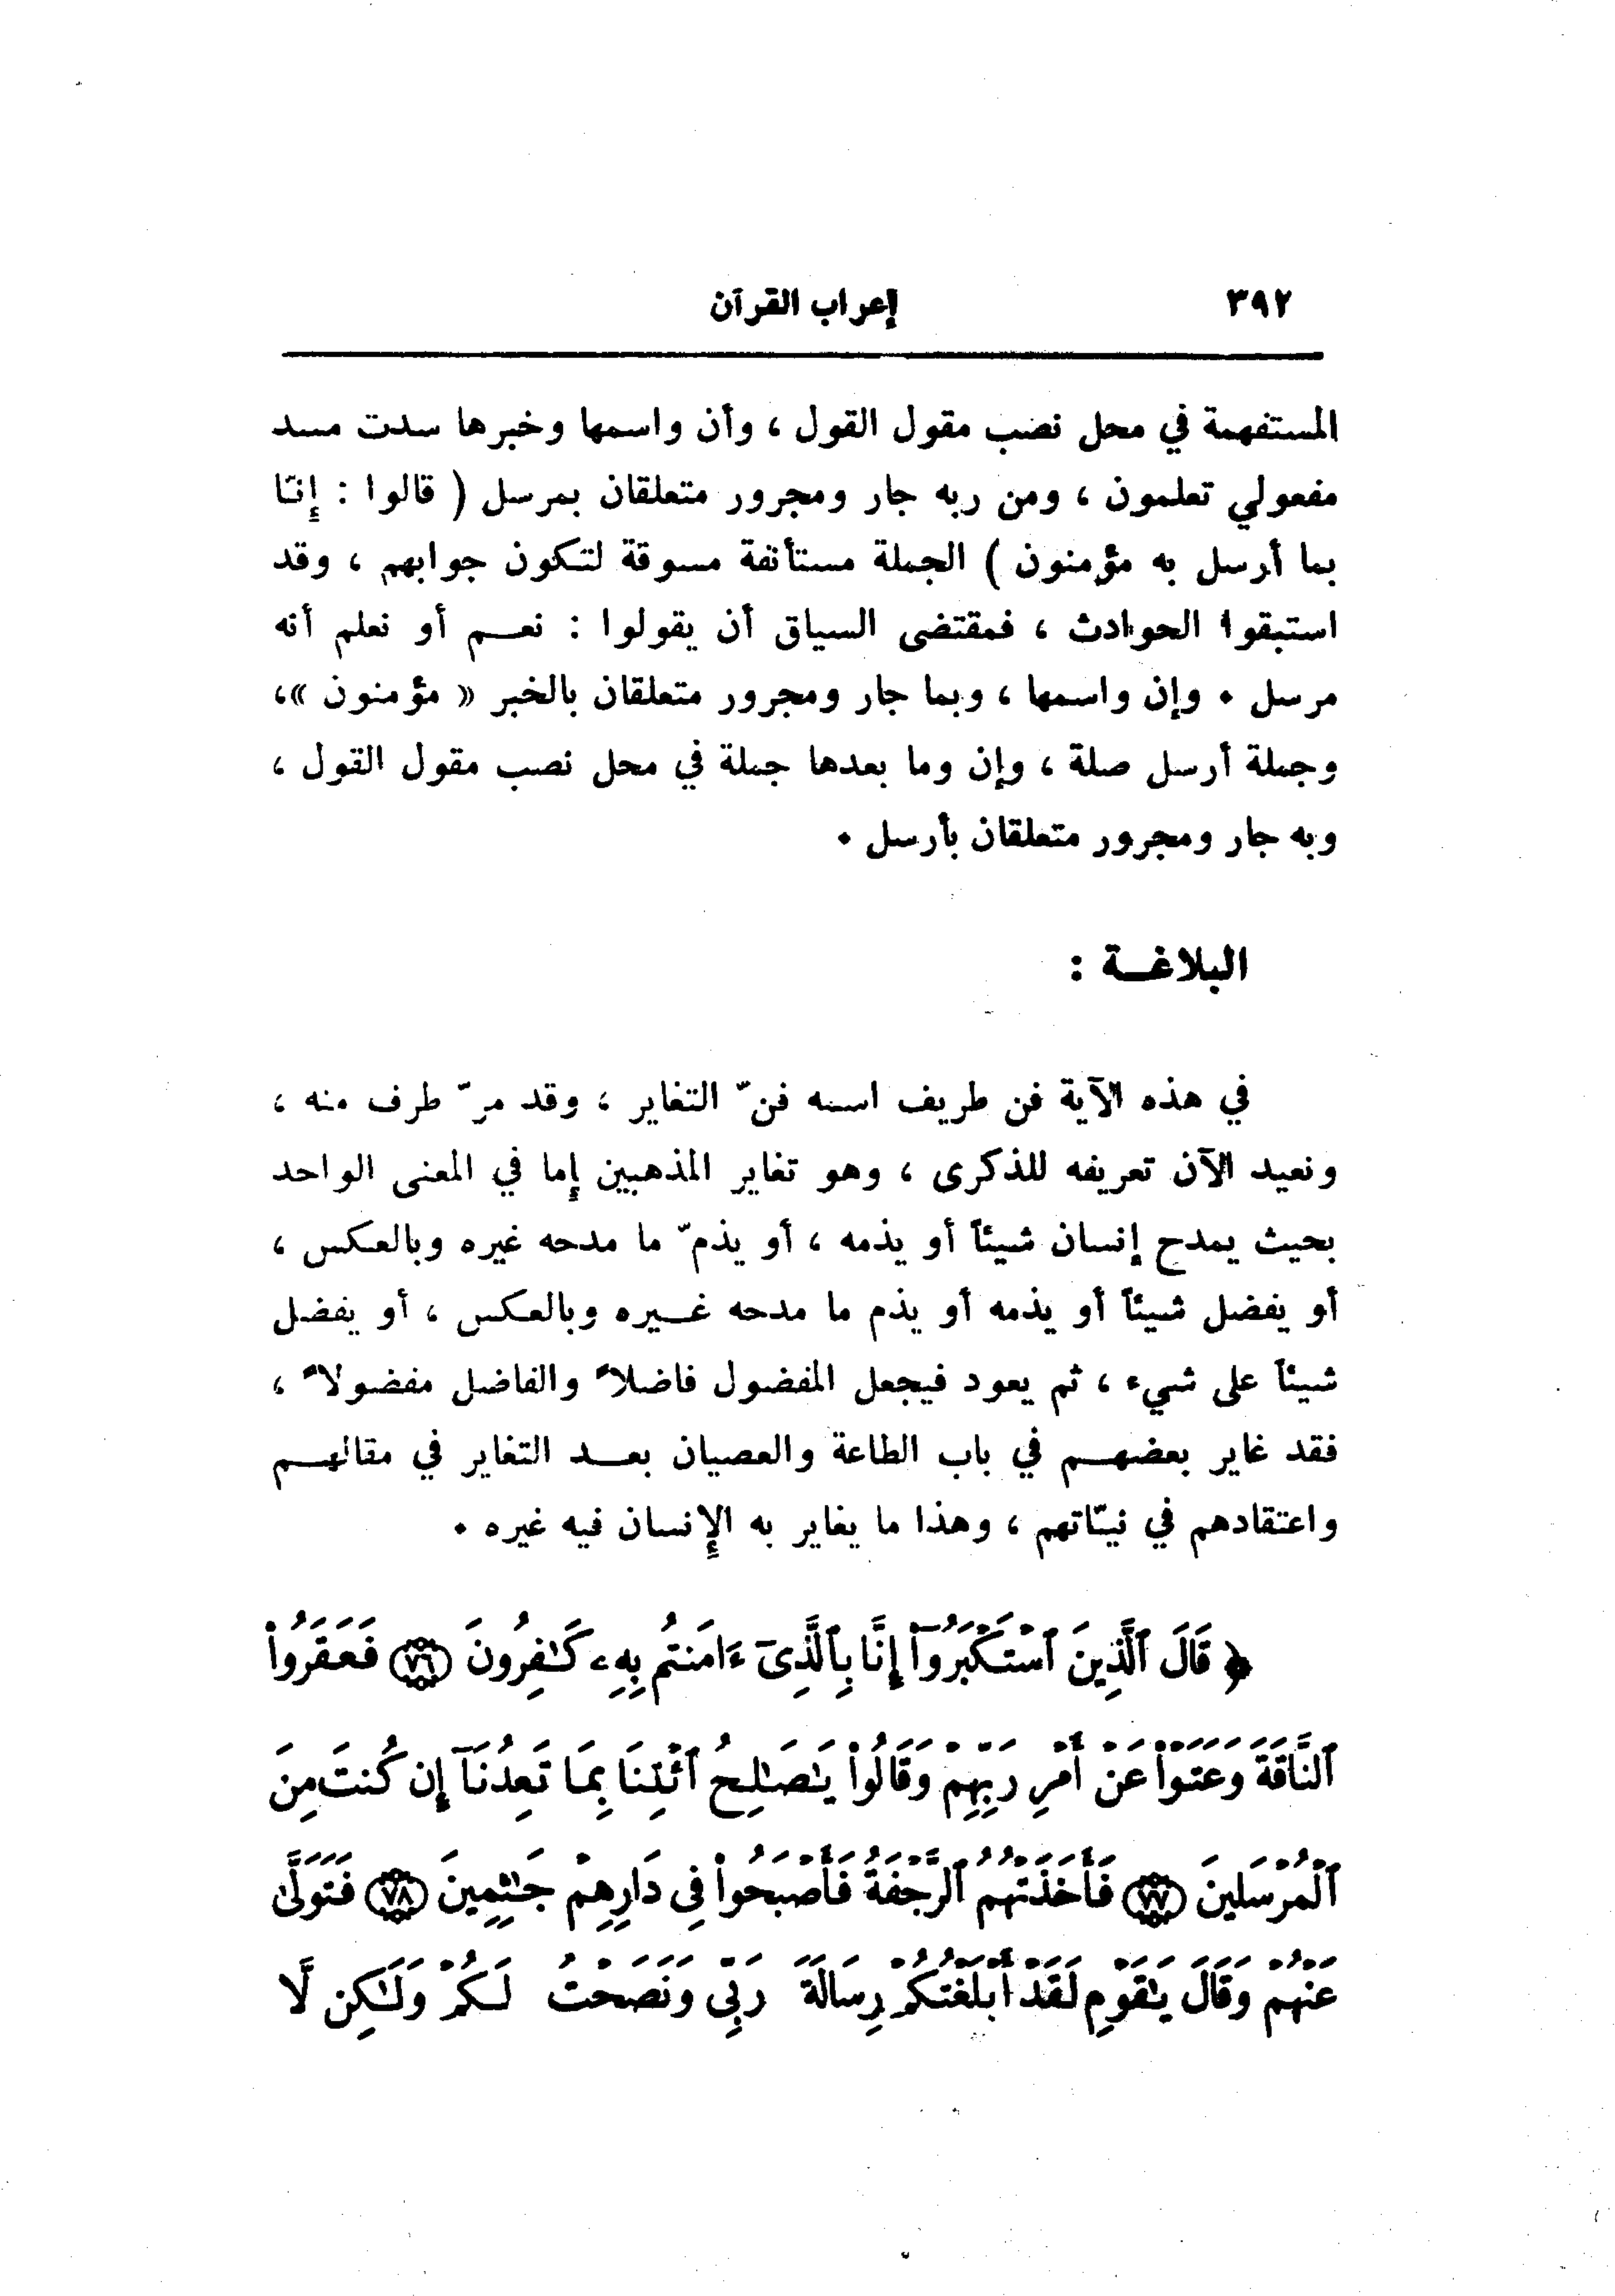 ٣٩٢ إعراب القرآن
المستفهمة في محل نصب مقول القول ، وأن واسمها وخبرها سدت مسد
مفعولي تعلمون ، ومن ربه جار ومجرور متعلقان بمرسل ( قالوا : إنّا
بما أرسل به مؤمنون ) الجملة مستأنفة مسوقة لتكون جوابهم ، وقد
استبقوا الحوادث ، فمقتضى السياق أن يقولوا : نعم أو نعلم أنه
مرسل . وإن واسمها ، وبما جار ومجرور متعلقان بالخبر « مؤمنون »،
وجملة أرسل صلة ، وإن وما بعدها جملة في محل نصب مقول القول ،
وبه جار ومجرور متعلقان بأرسل .
البلاغة :
في هذه الآية فن طريف اسمه فنّ التغاير ، وقد مرّ طرف منه ،
ونعيد الآن تعريفه للذكرى ، وهو تغاير المذهبين إما في المعنى الواحد
بحيث يمدح إنسان شيئاً أو يذمه ، أو يذمّ ما مدحه غيره وبالعكس ،
أو يفضل شيئاً أو يذمه أو يذم ما مدحه غيره وبالعكس ، أو يفضل
شيئاً على شيء ، ثم يعود فيجعل المفضول فاضلاً والفاضل مفضولاً ،
فقد غاير بعضهم في باب الطاعة والعصيان بعد التغاير في مقالهم
واعتقادهم في نيّاتهم ، وهذا ما يغاير به الإنسان فيه غيره .
﴿ قَالَ ٱلَّذِينَ ٱسْتَكْبَرُوٓا۟ إِنَّا بِٱلَّذِىٓ ءَامَنتُم بِهِۦ كَـٰفِرُونَ ٧٦ فَعَقَرُوا۟
ٱلنَّاقَةَ وَعَتَوْا۟ عَنْ أَمْرِ رَبِّهِمْ وَقَالُوا۟ يَـٰصَـٰلِحُ ٱئْتِنَا بِمَا تَعِدُنَآ إِن كُنتَ مِنَ
ٱلْمُرْسَلِينَ ٧٧ فَأَخَذَتْهُمُ ٱلرَّجْفَةُ فَأَصْبَحُوا۟ فِى دَارِهِمْ جَـٰثِمِينَ ٧٨ فَتَوَلَّىٰ
عَنْهُمْ وَقَالَ يَـٰقَوْمِ لَقَدْ أَبْلَغْتُكُمْ رِسَالَةَ رَبِّى وَنَصَحْتُ لَكُمْ وَلَـٰكِن لَّا